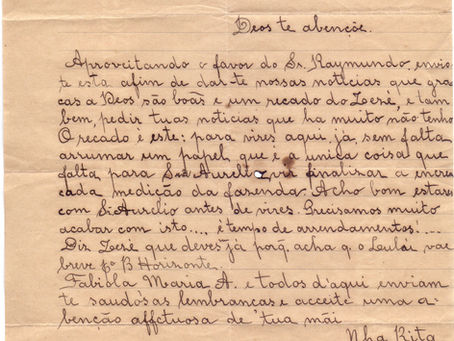 Deos te abençõe.
Aproveitando o favor do Sr. Raymundo, envio-
te esta afim de dar-te nossas noticias que gra-
ças a Deos são boas e um recado do Zezé, e tam
bem, pedir tuas noticias que ha muito não tenho
O recado é este: para vires aqui, já, sem falta,
arrumar um papel, que é a unica coisa que
falta para Sr. Aurelio vir finalisar a encren
cada medição da fazenda. Acho bom estares
com Sr. Aurelio antes de vires. Precisamos muito
acabar com isto..., é tempo de arrendamentos......
Diz Zezé que deves já porq̃ acha q. o Lulú vae
breve pª B Horizonte.
Fabiola Maria A. e todos d'aqui enviam
te saudosas lembranças e acceite uma a-
benção affctuosa de tua mãi
Nha Rita